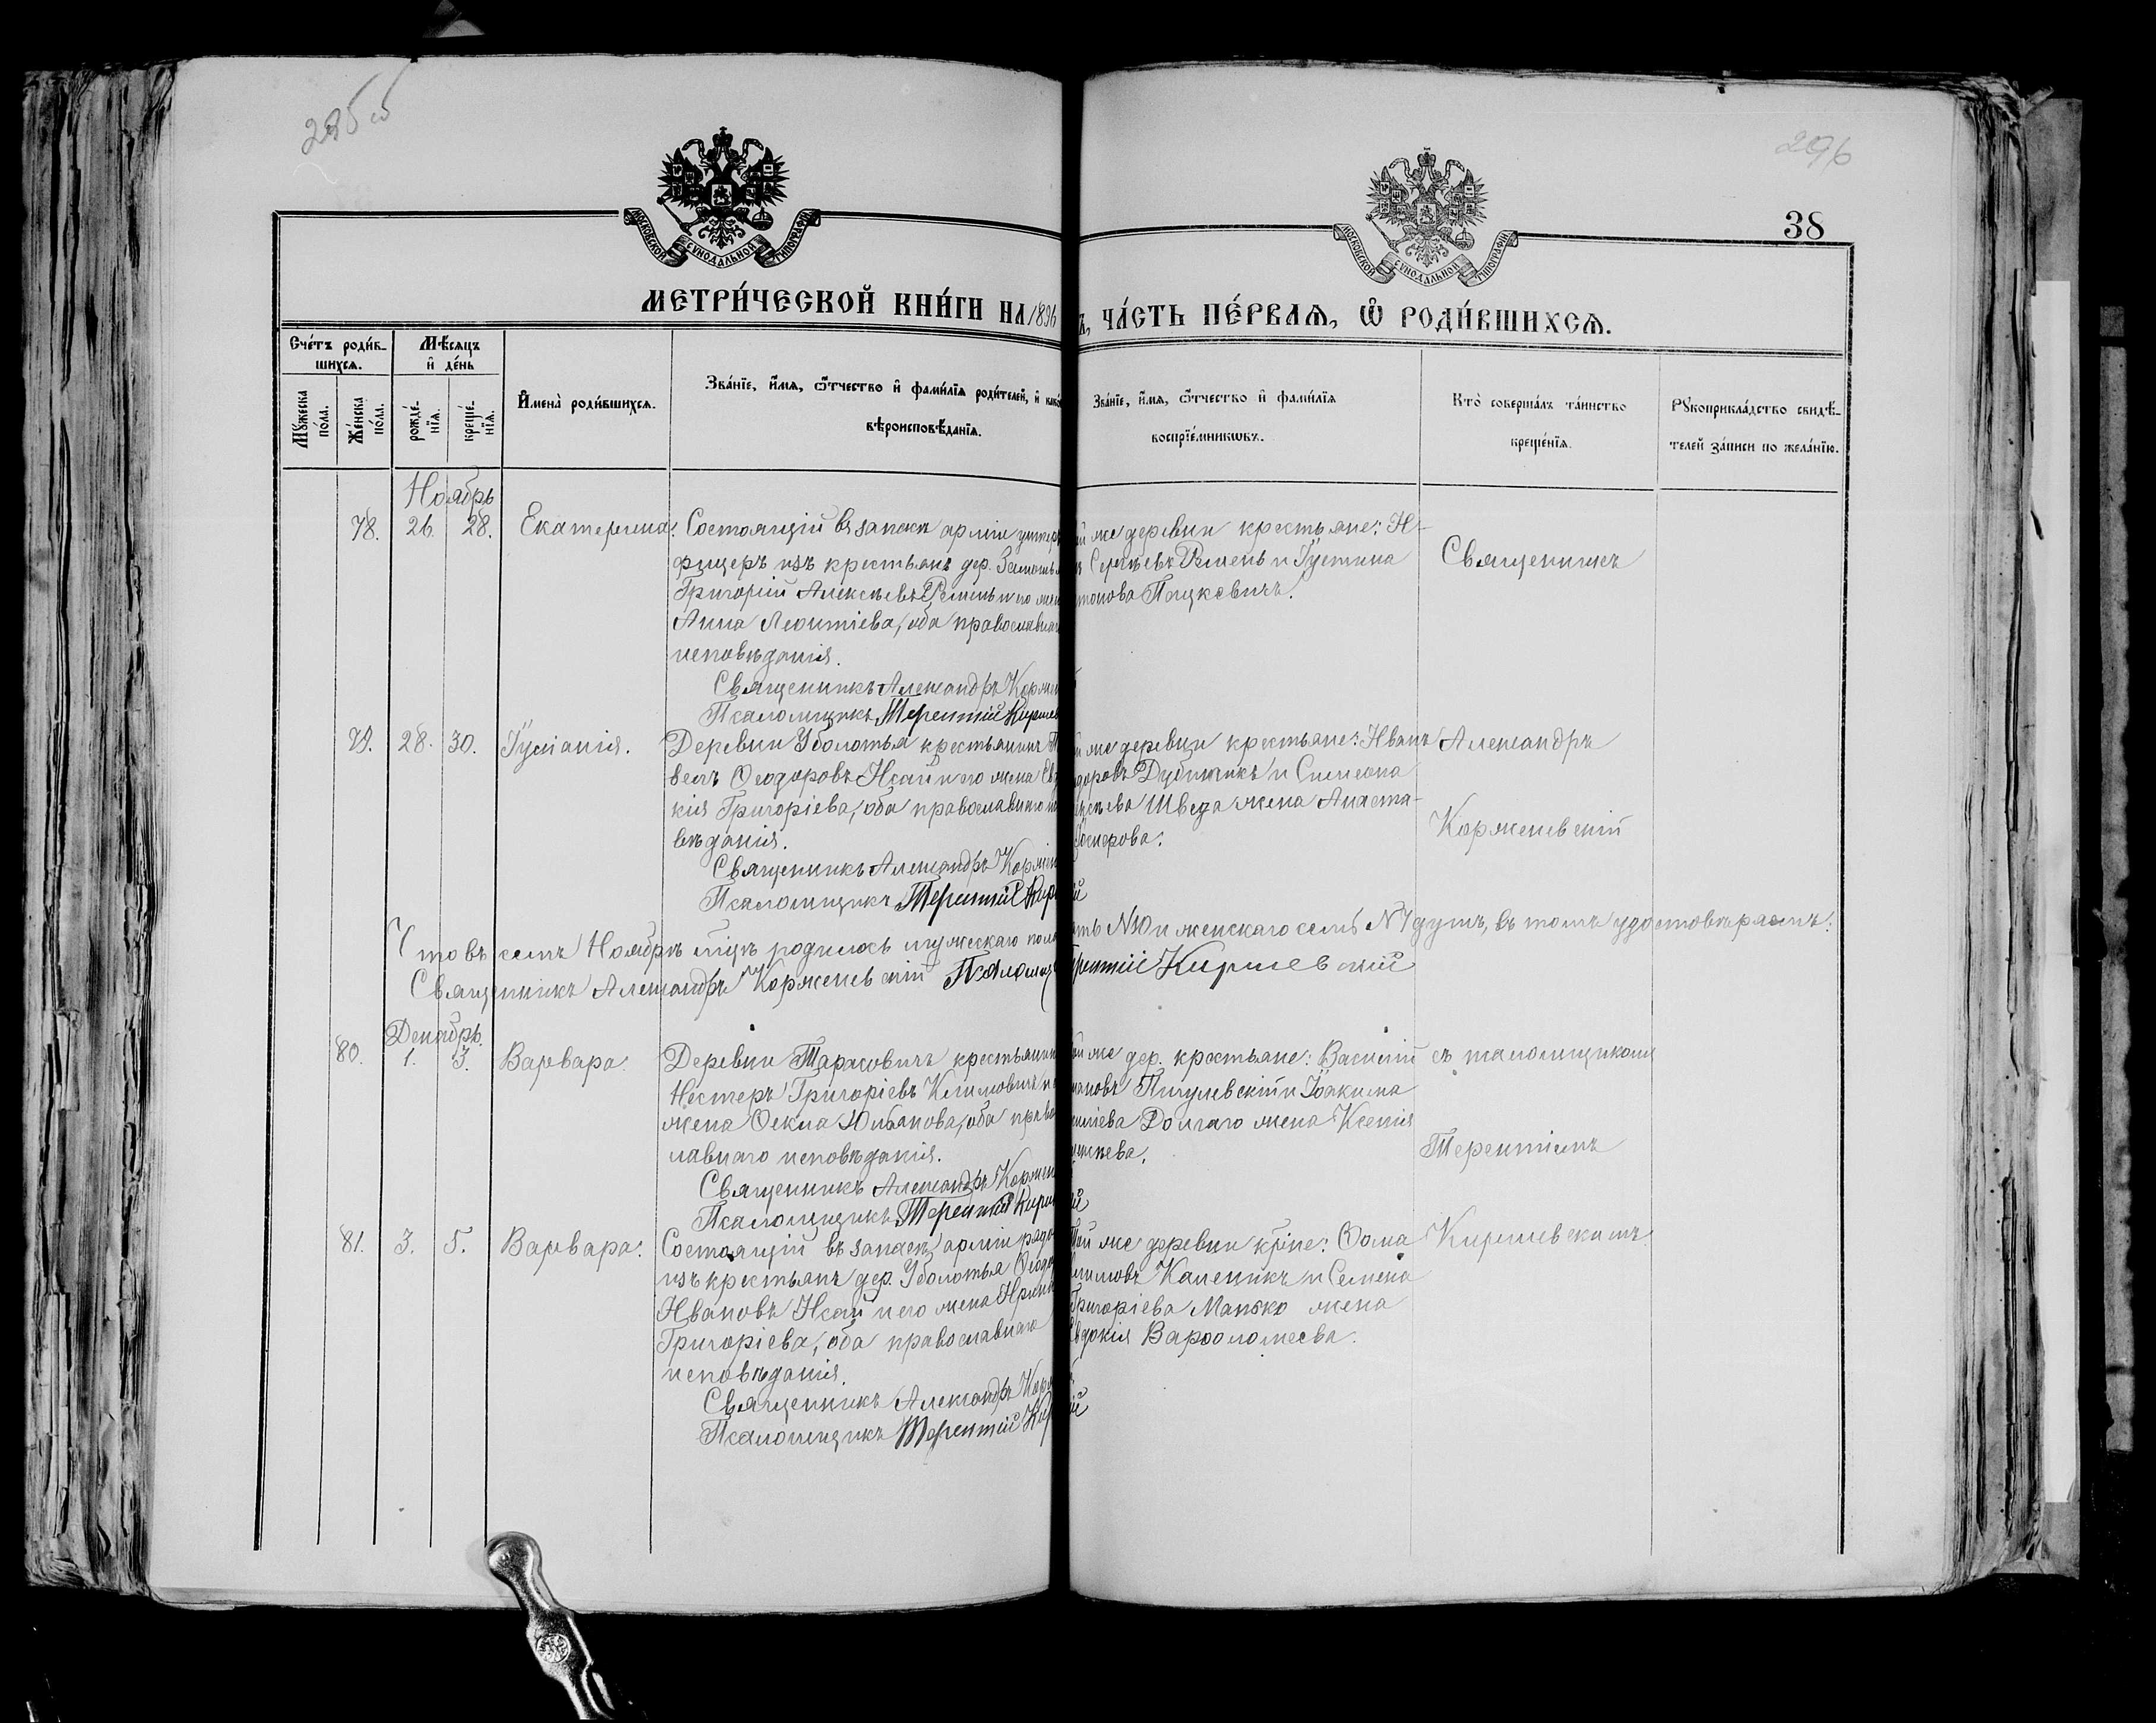 295 об
296
38
МОСКОВСКОЙ СѴНОДАЛЬНОЙ ТИПОГРАФІИ
МОСКОВСКОЙ СѴНОДАЛЬНОЙ ТИПОГРАФІИ
МЕТРИ́ЧЕСКОЙ КНИ́ГИ НА 1896
ЧА́СТЬ ПЕ́РВАѦ, Ѽ РОДИ́ВШИХСѦ.
Сче́тъ роди́в-
шихсѧ.
Мꙋ́жеска по́ла.
Же́нска по́ла.
Мѣ́сѧцъ
и҆ де́нь
рожде́-нїѧ.
креще́-нїѧ.
И҆мена̀ роди́вшихсѧ.
Зва́нїе, и҆́мѧ, ѻ҆́тчество и҆ фами́лїѧ роди́телей, и҆ како
вѣроисповѣ́данїѧ.
Зва́нїе, и҆́мѧ, ѻ҆́тчество и҆ фами́лїѧ
воспрїе́мникѡвъ.
Кто̀ соверша́лъ та́инство
креще́нїѧ.
Рꙋкоприкла́дство свидѣ́-
телей за́писи по жела́нїю.
Ноябрь
78. 26. 28. Екатерина. Состоящій въ запасѣ арміи унтеръ
фицеръ изъ крестьянъ дер.
Григорій Алексѣевъ Ремень и его жен
Анна Леонтіева, оба православнаг
исповѣданія.
Священникъ Александръ Коржен
Псаломщикъ Терентій Киршев
ой же деревни крестьяне: И-
Сергѣевъ Ремень и Іустина
Пацкевичъ.
Священникъ
79. 28. 30. Іуліанія. Деревни Уболотья крестьянинъ Па
велъ Ѳеодоровъ Исай и его жена Ев
кія Григоріева, оба православнаго
вѣданія.
Священникъ Александръ Коржен
Псаломщикъ Терентій Кирш
й же деревни крестьяне: Иванъ
доровъ Дубатикъ и Симеона
Шведа жена Анаста-
Александръ
Корженевскій
Что въ семъ Ноябрѣ мѣсяцѣ родилось мужескаго пола
сть №10 и женскаго семь №7 душъ, въ томъ удостовѣряемъ:
Священникъ Александръ Корженевскій Псаломщ
Терентій Киршевскій
Декабрь.
80. 1. 3. Варвара. Деревни Тарасовичъ крестьянин
Нестеръ Григоріевъ Климовичъ и
жена Ѳекла Юльянова, оба право
славнаго исповѣданія.
Священникъ Александръ Коржен
Псаломщикъ Терентій Кирш
ой же дер. крестьяне: Василій
Пигулевскій и Іоакима
Долгаго жена Ксенія
съ псаломщикомъ
Терентіемъ
81. 3. 5. Варвара. Состоящій въ запасѣ арміи рядо
изъ крестьянъ дер. Уболотья Ѳеодо
Ивановъ Исай и его жена Ирина
Григоріева, оба православнаго
исповѣданія.
Священникъ Александръ Корж
Псаломщикъ Терентій Кирш
Той же деревни кр-не: Ѳома
Каленикъ и Семена
Григоріева Манько жена
Евдокія Варѳоломеева.
Киршевскимъ.